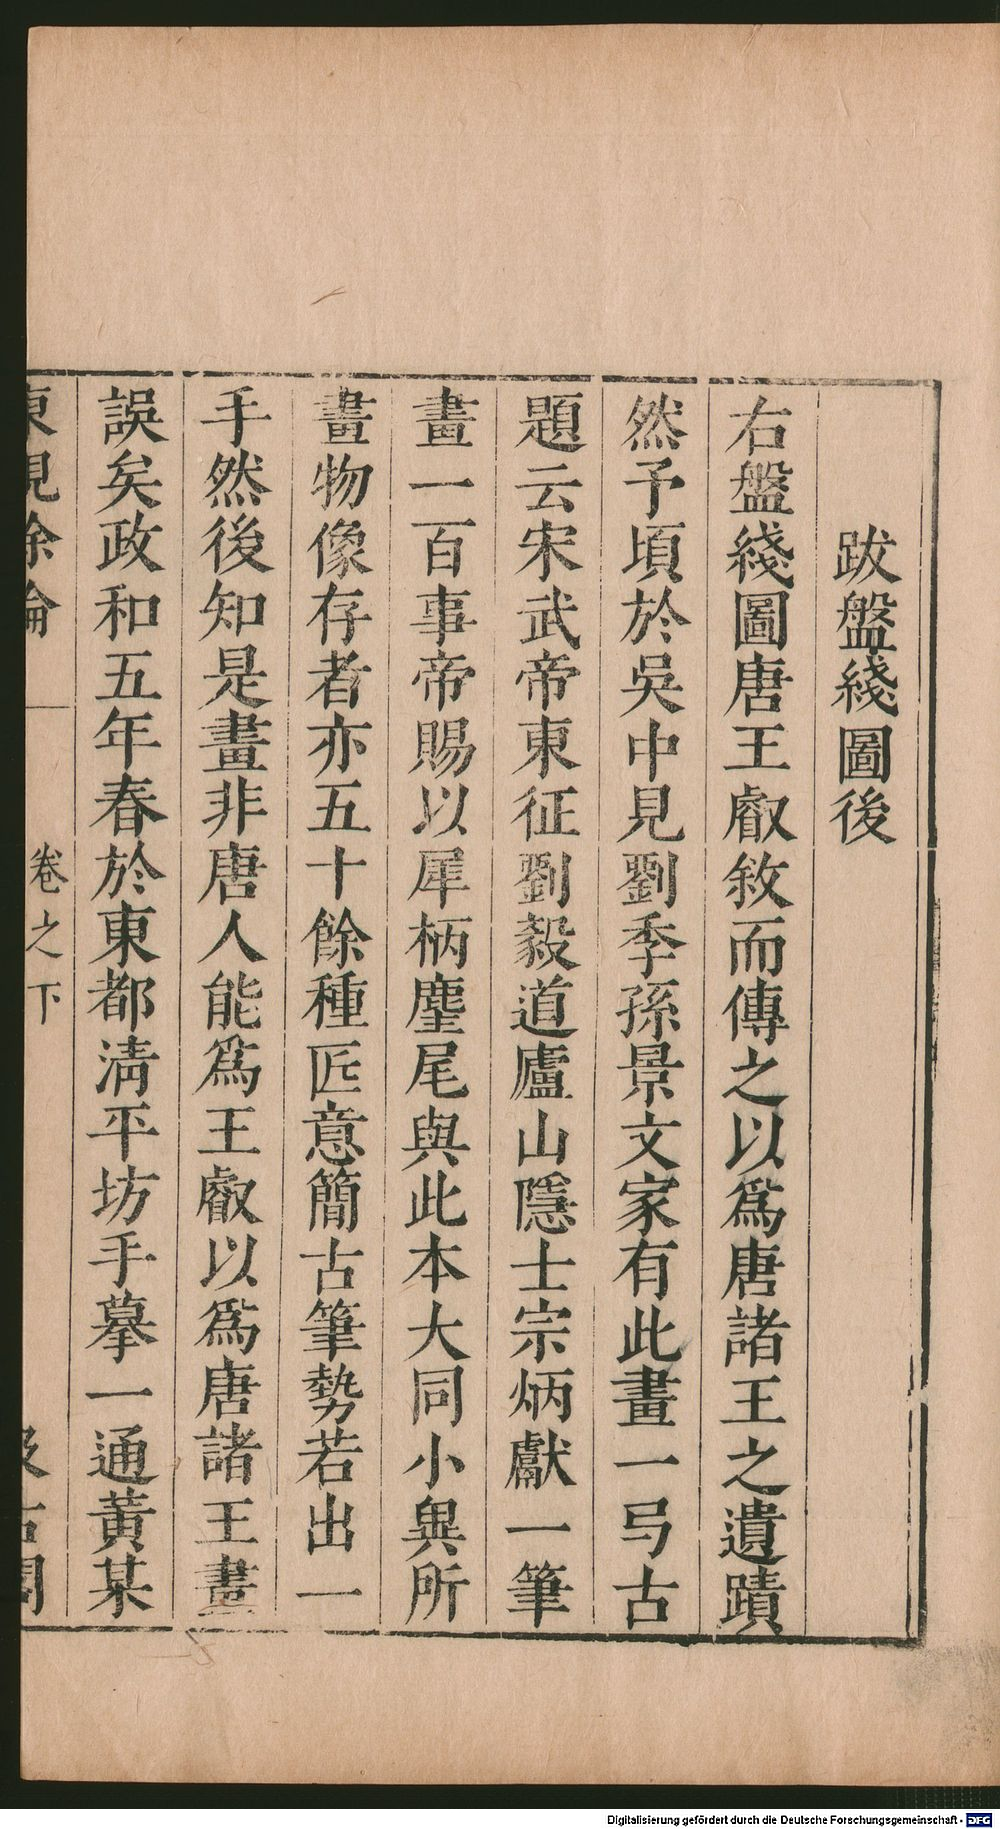 跋盤綫圖後
右盤綫圖唐王叡敘而傳之以爲唐諸王之遺蹟
然予頃於吳中見劉季孫景文家有此畫一弓古
題云宋武帝東征劉毅道廬山隱士宗炳獻一筆
畫一百事帝賜以犀柄麈尾與此本大同小異所
畫物像存者亦五十餘種匠意簡古筆勢若出一
手然後知是畫非唐人能爲王叡以爲唐諸王畫
誤矣政和五年春於東都清平坊手摹一通黃某
東觀餘論
卷之下
汲古閣
Digitalisierung gefördert durch die Deutsche Forschungsgemeinschaft - DFG